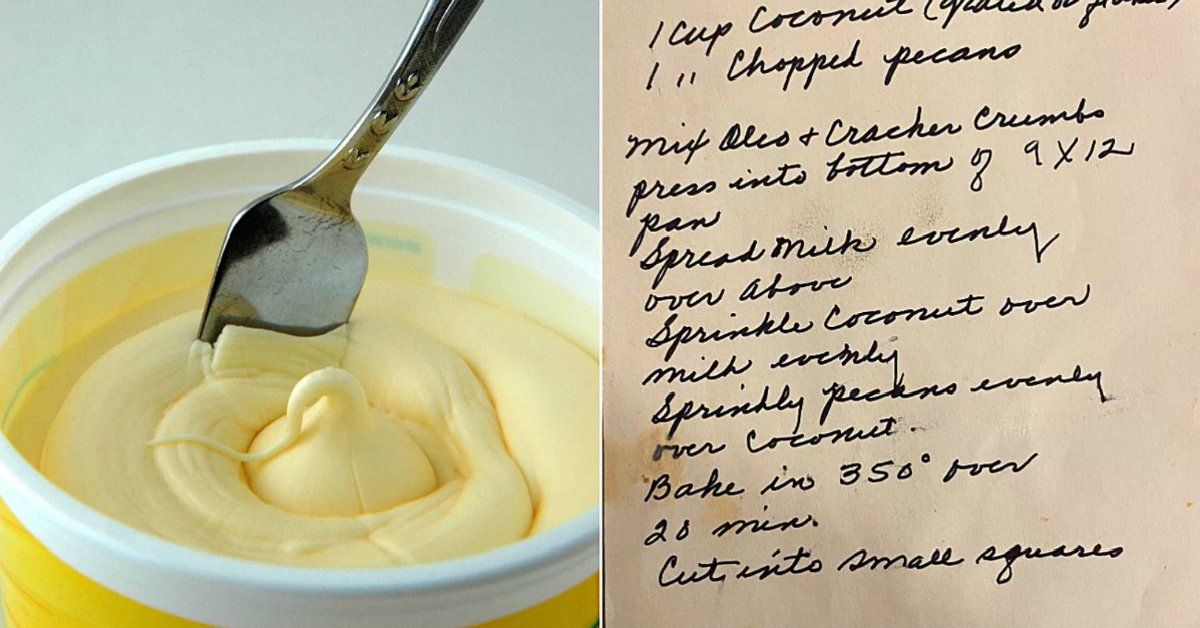 1 Cup Coconut (grated or flaked)
1 " Chopped pecans
Mix Oleo + Cracker Crumbs
press into bottom of 9 X 12
pan
Spread Milk evenly
over above
Sprinkle Coconut over
milk evenly
Sprinkly pecans evenly
over Coconut.
Bake in 350° over
20 min.
Cut into small squares